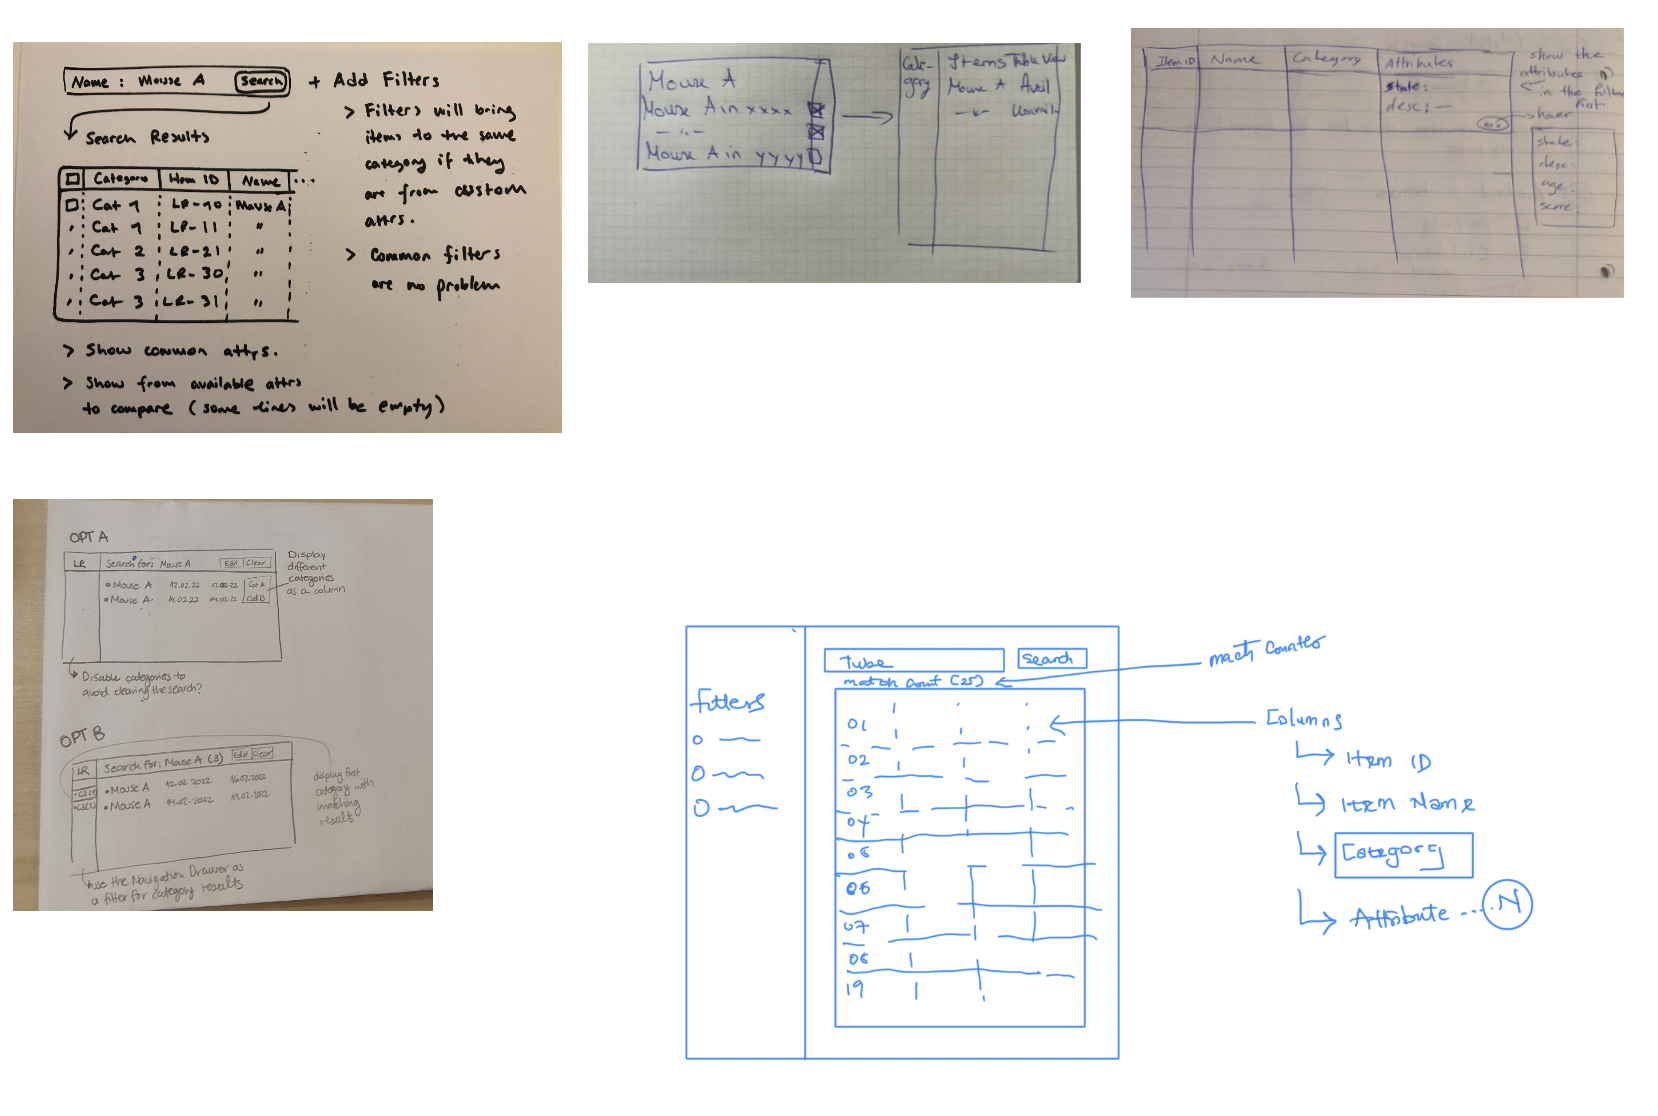 Name : Mouse A
Search
+ Add Filters
> Filters will bring
items to the same
category if they
are from custom
attrs.
> Common filters
are no problem
Search Results
Category Item ID Name ...
Cat 1 LR-10 Mouse A
Cat 1 LR-11 "
Cat 2 LR-21 "
Cat 3 LR-30 "
Cat 3 LR-31 "
> Show common attrs.
> Show from available attrs
to compare (some lines will be empty)
Mouse A
Mouse A in xxxx
Mouse A in yyyy
Cate-
gory
Items Table View
Mouse A Avail
Item ID Name Category Attributes
state:
desc:
show the
attributes
in the
first
state:
desc:
age:
score:
OPT A
LR Search for: Mouse A Edit Clear
• Mouse A 12.02.22 12.02.22 Cat A
• Mouse A 14.02.22 14.02.22 Cat B
Display
different
categories
as a column
Disable categories to
avoid clearing the search?
OPT B
LR Search for: Mouse A (3) Edit Clear
• Mouse A 12.02.2022 16.02.2022
• Mouse A 14.02.2022 19.02.2022
display first
category with
matching
results
use the Navigation Drawer as
a filter for category results
Tube
Search
match count (25)
mach counter
filters
01
02
03
04
05
06
07
08
19
Columns
Item ID
Item Name
Category
Attribute ....N